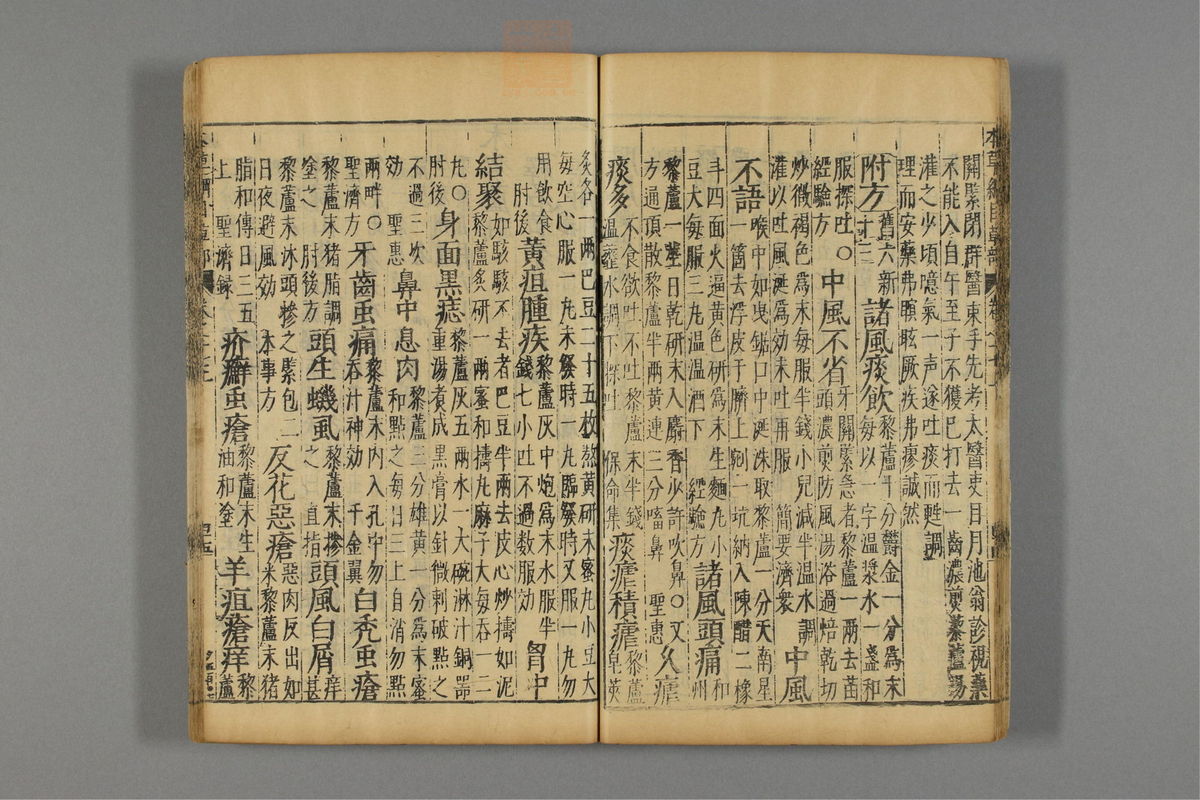 關緊閉群醫束手先考太醫吏目月池翁診視藥
不能入自午至子不獲已打去一齒濃煎藜蘆湯
灌之少頃噫氣一聲遂吐痰而甦調
理而安藥弗瞑眩厥疾弗瘳誠然
附方舊六新十三 諸風痰飲藜蘆十分鬱金一分爲末每以一字溫漿水一盞和
服探吐○經驗方 中風不省牙關緊急者藜蘆一兩去苗頭濃煎防風湯浴過焙乾切
炒微褐色爲末每服半錢小兒減半溫水調灌以吐風涎爲効未吐再服 簡要濟衆 中風
不語喉中如曳鋸口中涎沫取藜蘆一分天南星一箇去浮皮于臍上剜一坑納入陳醋二橡
斗四面火逼黃色研爲末生麵丸小豆大每服三丸溫酒下 經驗方 諸風頭痛和州
藜蘆一莖日乾研末入麝香少許吹鼻○又方通頂散藜蘆半兩黃連三分㗜鼻 聖惠 久瘧
痰多不食欲吐不吐藜蘆末半錢溫虀水調下探吐 保命集 痰瘧積瘧藜蘆皂莢
炙各一兩巴豆二十五枚熬黃研末蜜丸小豆大每空心服一丸未發時一丸臨發時又服一丸勿
用飲食 肘後 黃疸腫疾藜蘆灰中炮爲末水服半錢七小吐不過數服効 胷中
結聚如駭駭不去者巴豆半兩去皮心炒擣如泥藜蘆炙研一兩蜜和擣丸麻子大每吞一二
丸○肘後 身面黑痣藜蘆灰五兩水一大碗淋汁銅器重湯煮成黑膏以針微刺破點之
不過三次効 聖惠 鼻中息肉藜蘆三分雄黃一分爲末蜜和點之每日三上自消勿點
兩畔○聖濟方 牙齒虫痛藜蘆末內入孔中勿吞汁神効 千金翼 白禿虫瘡
藜蘆末猪脂調塗之 肘後方 頭生蟣虱藜蘆末摻之 直指 頭風白屑痒甚
藜蘆末沐頭摻之緊包二日夜避風効 本事方 反花惡瘡惡肉反出如米藜蘆末猪
脂和傅日三五上 聖濟録 疥癬虫瘡藜蘆末生油和塗 羊疽瘡痒藜蘆